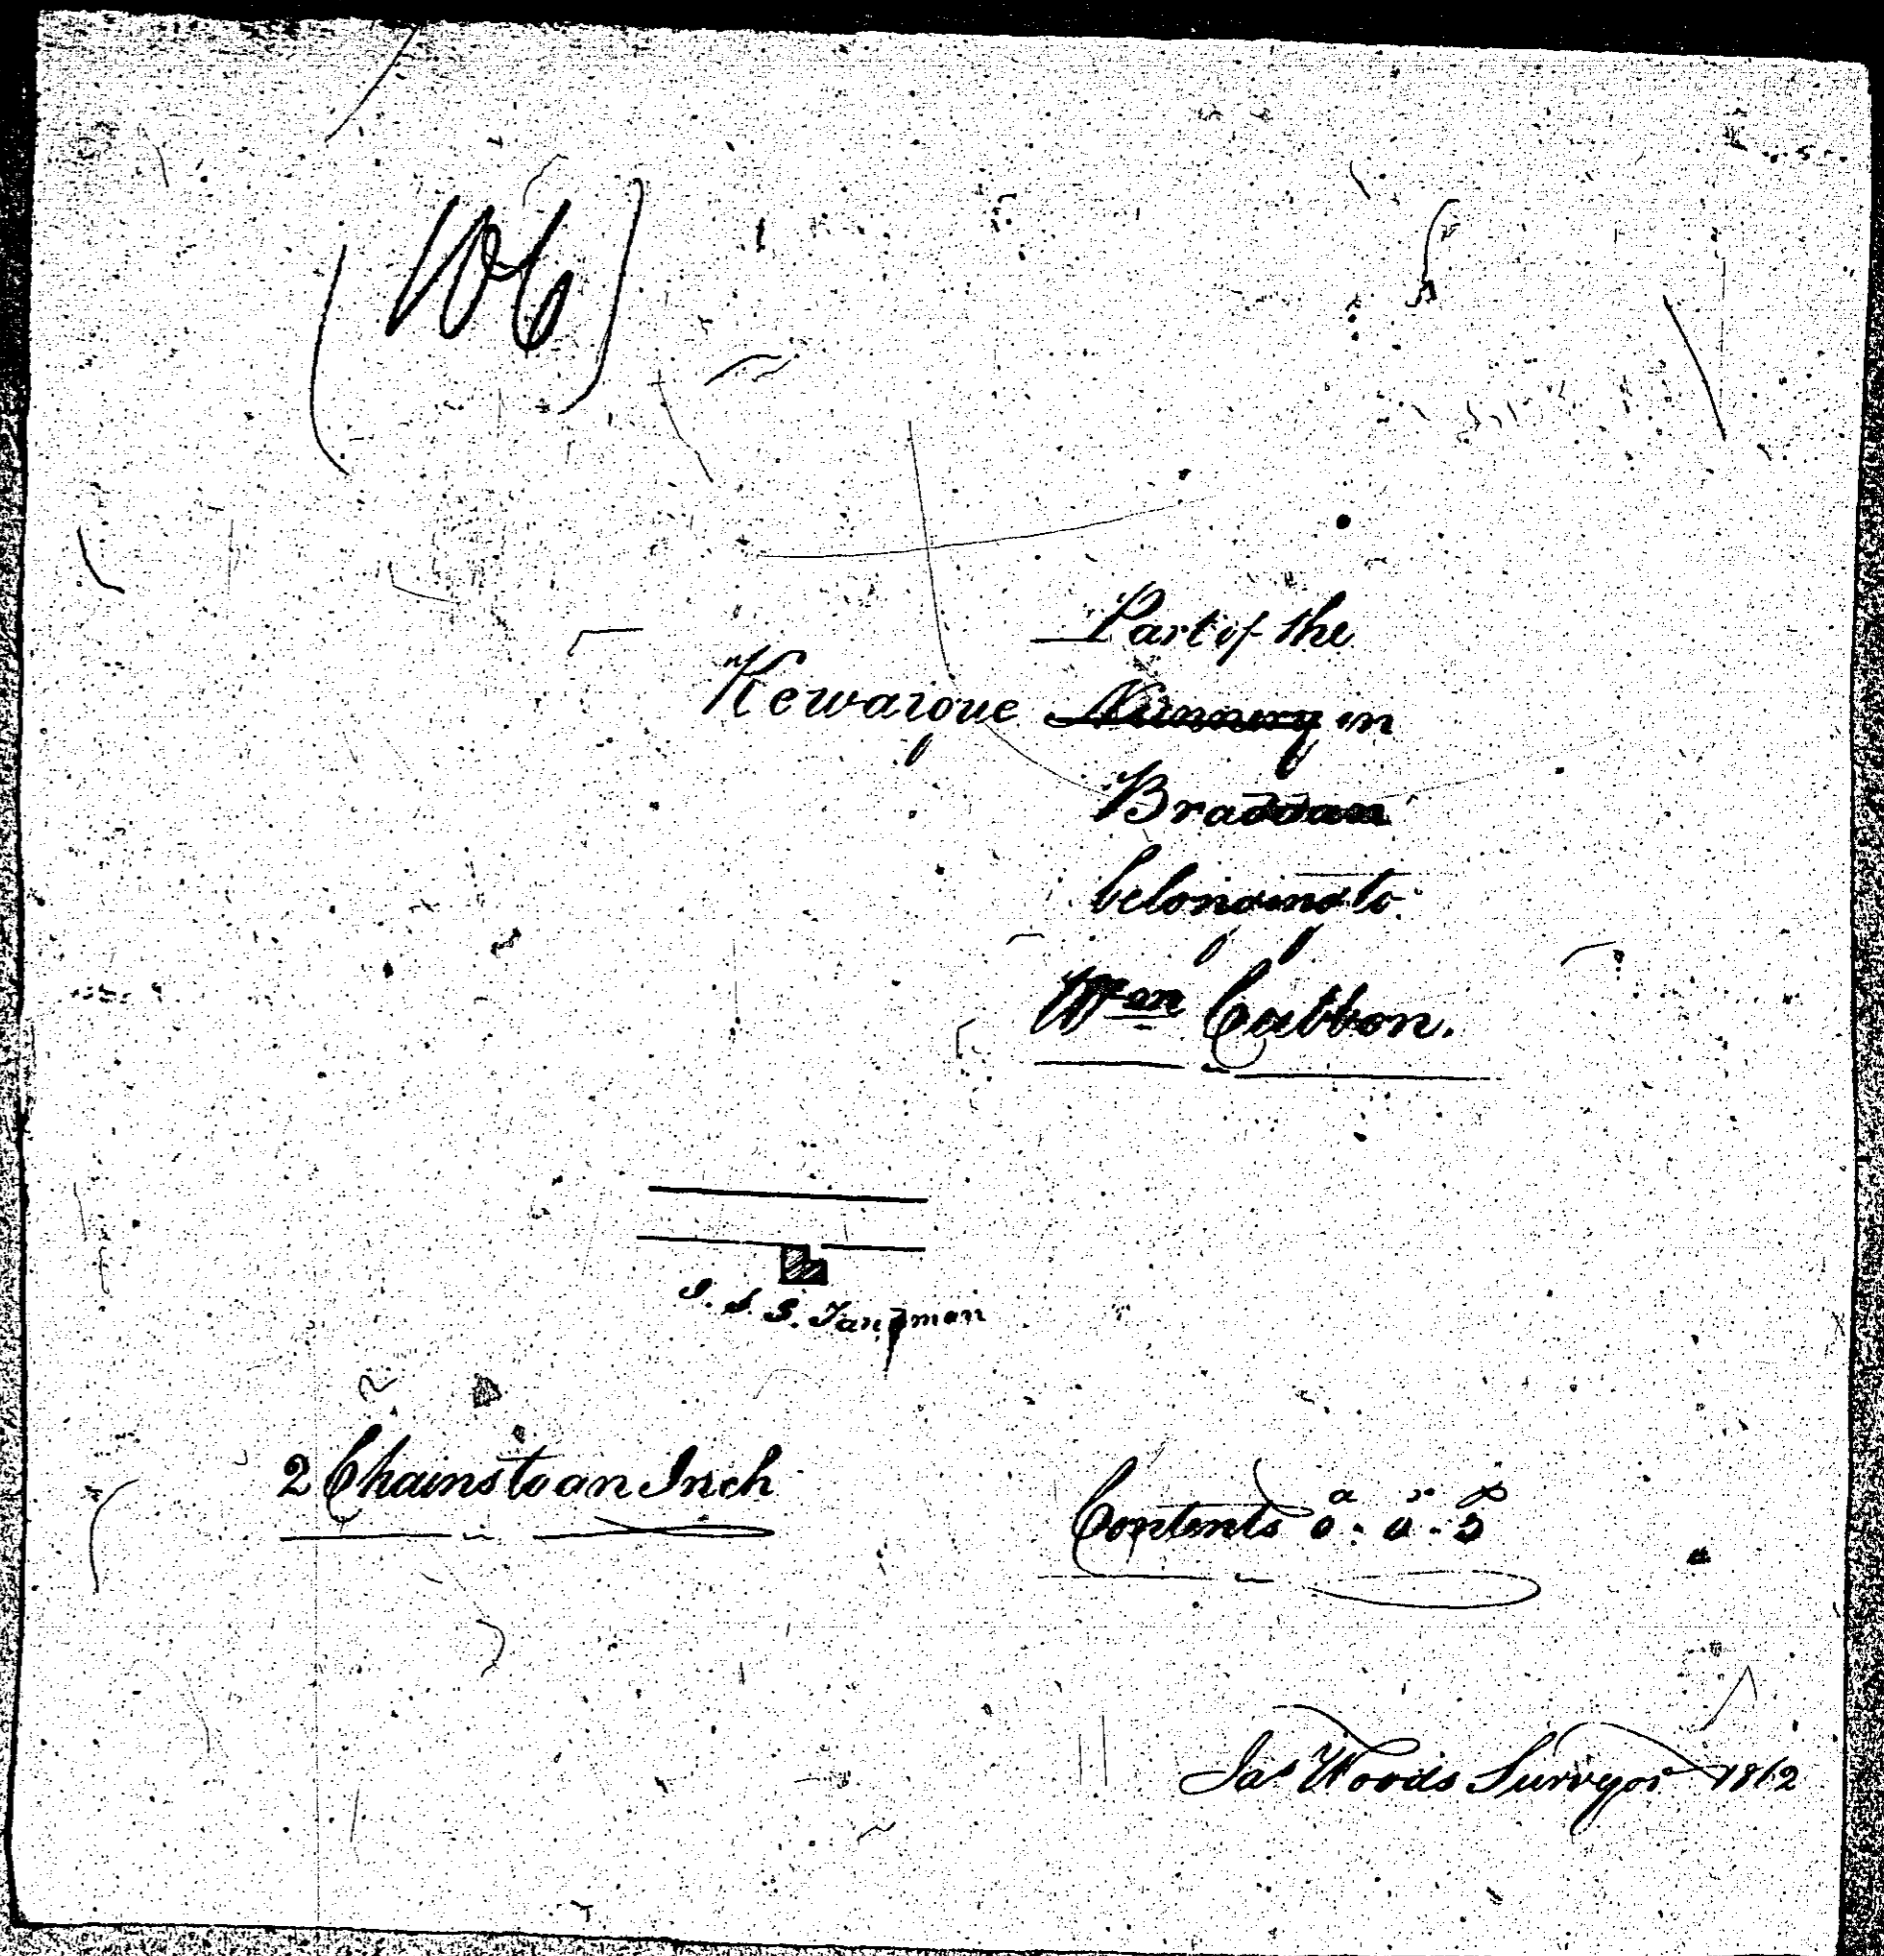 Part of the
Kewaigue Nunnery in
Braddan
belonging to
Wm Cubbon.
2 Chains to an Inch
Contents
a r p
Jas Woods Surveyor 1862